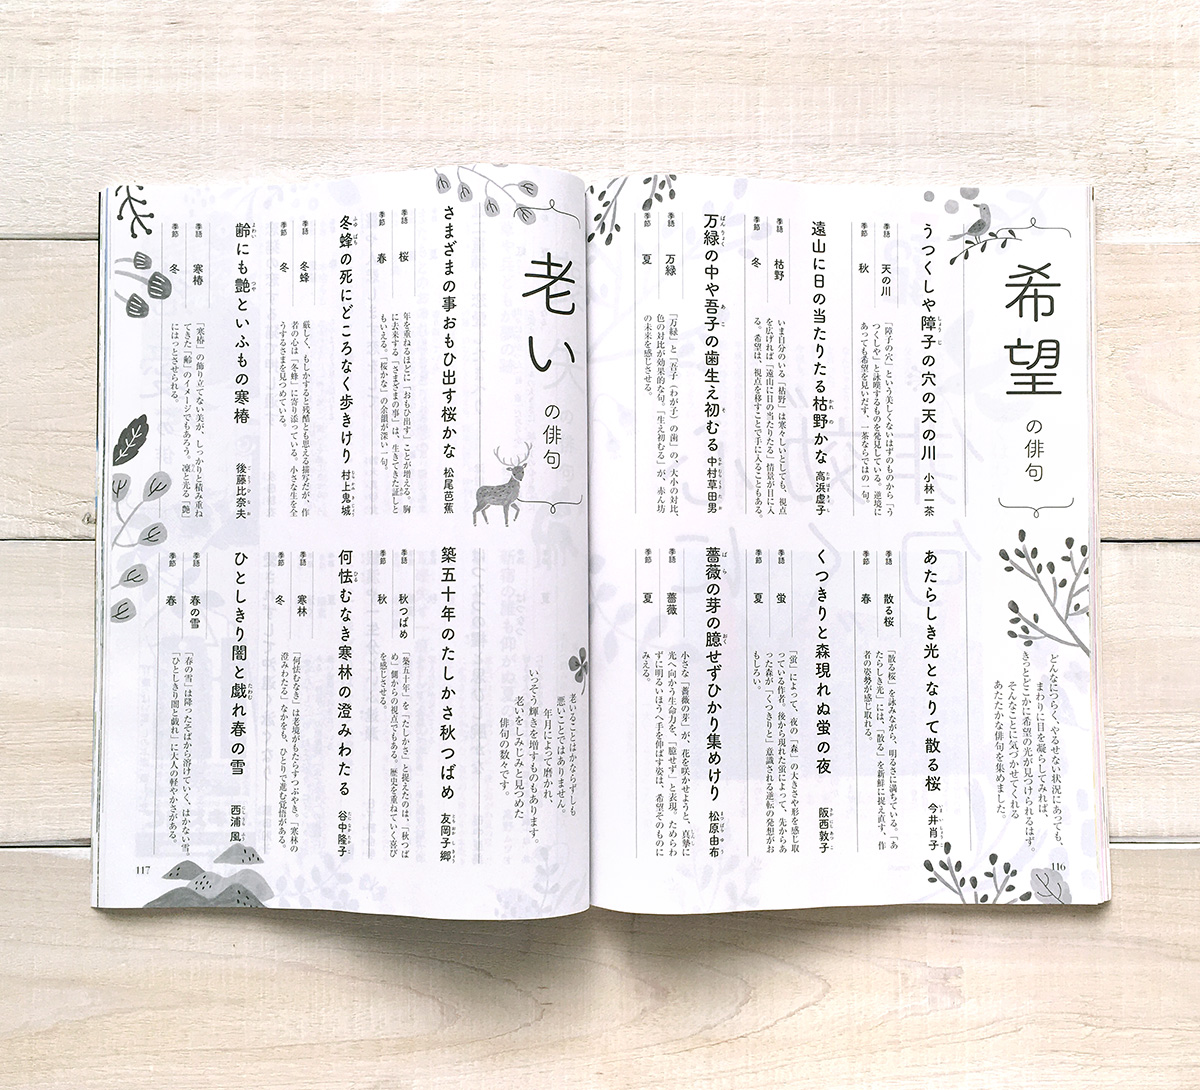 希望の俳句
どんなにつらく、やるせない状況にあっても、
まわりに目を凝らしてみれば、
きっとどこかに希望の光が見つけられるはず。
そんなことに気づかせてくれる
あたたかな俳句を集めました。
うつくしや障子の穴の天の川 小林一茶
季語 天の川
季節 秋
「障子の穴」という美しくないはずのものから「う
つくしや」と詠嘆するものを発見している。逆境に
あっても希望を見いだす、一茶ならではの一句。
遠山に日の当たりたる枯野かな 高浜虚子
季語 枯野
季節 冬
いま自分のいる「枯野」は寒々しいとしても、視点
を広げれば「遠山に日の当たりたる」情景が目に入
る。希望は、視点を移すことで手に入ることもある。
万緑の中や吾子の歯生え初むる 中村草田男
季語 万緑
季節 夏
「万緑」と「吾子（わが子）の歯」の、大小の対比、
色の対比が効果的な句。「生え初むる」が、赤ん坊
の未来を感じさせる。
あたらしき光となりて散る桜 今井肖子
季語 散る桜
季節 春
「散る桜」を詠みながら、明るさに満ちている。「あ
たらしき光」には、「散る」を新鮮に捉え直す、作
者の姿勢が感じ取れる。
くつきりと森現れぬ蛍の夜 阪西敦子
季語 蛍
季節 夏
「蛍」によって、夜の「森」の大きさや形を感じ取
っている作者。後から現れた蛍によって、先からあ
った森が「くつきりと」意識される逆転の発想がお
もしろい。
薔薇の芽の臆せずひかり集めけり 松原由布
季語 薔薇
季節 夏
小さな「薔薇の芽」が、花を咲かせようと、真摯に
光へ向かう生命力を、「臆せず」と表現。ためらわ
ずに明るいほうへ手を伸ばす姿は、希望そのものに
みえる。
116
老いの俳句
老いることはかならずしも
悪いことではありません。
年月によって磨かれ、
いっそう輝きを増すものもあります。
老いをしみじみと見つめた
俳句の数々です。
さまざまの事おもひ出す桜かな 松尾芭蕉
季語 桜
季節 春
年を重ねるほどに「おもひ出す」ことが増える。胸
に去来する「さまざまの事」は、生きてきた証しと
もいえる。「桜かな」の余韻が深い一句。
冬蜂の死にどころなく歩きけり 村上鬼城
季語 冬蜂
季節 冬
厳しく、もしかすると残酷とも思える描写だが、作
者の心は「冬蜂」に寄り添っている。小さな生を全
うするさまを見つめている。
齢にも艶といふもの寒椿 後藤比奈夫
季語 寒椿
季節 冬
「寒椿」の飾り立てない美が、しっかりと積み重ね
てきた「齢」のイメージでもあろう。凜と光る「艶」
にはっとさせられる。
築五十年のたしかさ秋つばめ 友岡子郷
季語 秋つばめ
季節 秋
「築五十年」を「たしかさ」と捉えたのは、「秋つば
め」側からの視点でもある。歴史を重ねていく喜び
を感じさせる。
何怯むなき寒林の澄みわたる 谷中隆子
季語 寒林
季節 冬
「何怯むなき」は老境がもたらすつぶやき。「寒林の
澄みわたる」なかをも、ひとりで進む覚悟がある。
ひとしきり闇と戯れ春の雪 西浦風
季語 春の雪
季節 春
「春の雪」は降ったそばから溶けていく、はかない雪。
「ひとしきり闇と戯れ」に大人の軽やかさがある。
117